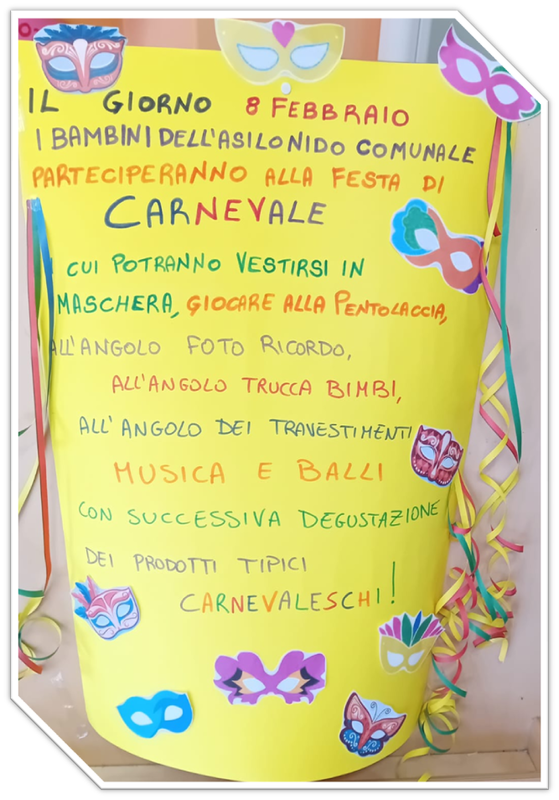 IL GIORNO 8 FEBBRAIO
I BAMBINI DELL'ASILONIDO COMUNALE
PARTECIPERANNO ALLA FESTA DI
CARNEVALE
CUI POTRANNO VESTIRSI IN
MASCHERA, GIOCARE ALLA PENTOLACCIA,
ALL'ANGOLO FOTO RICORDO,
ALL'ANGOLO TRUCCA BIMBI,
ALL'ANGOLO DEI TRAVESTIMENTI
MUSICA E BALLI
CON SUCCESSIVA DEGUSTAZIONE
DEI PRODOTTI TIPICI
CARNEVALESCHI!